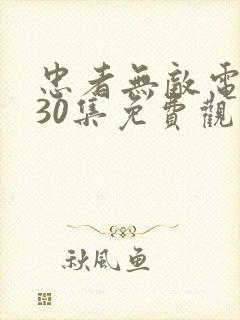 忠者無敵電
30集免費觀
秋風魚